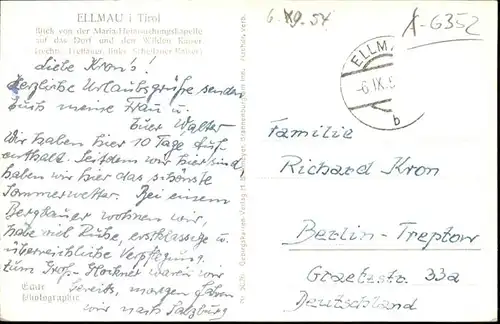 ELLMAU i Tirol
Blick von der Maria-Heimsuchungskapelle
auf das Dorf und den Wilden Kaiser
(rechts Treffauer, links Scheffauer Kaiser)
6.IX.54
A-6352
ELLMAU
-6.IX.5
b
Liebe Kron's!
Herzliche Urlaubsgrüße senden
Euch meine Frau u.
Euer Walter
Wir haben hier 10 Tage Auf-
enthalt. Seitdem wir hier sind,
haben wir hier das schönste
Sommerwetter. Bei einem
Bergbauer wohnen wir,
habe viel Ruhe, erstklassige u.
überreichliche Verpflegung.
Zum Groß-Glockner waren wir
bereits, morgen fahren
wir nach Salzburg
Echte
Photographie
Familie
Richard Kron
Berlin-Treptow
Graetzstr. 33a
Deutschland